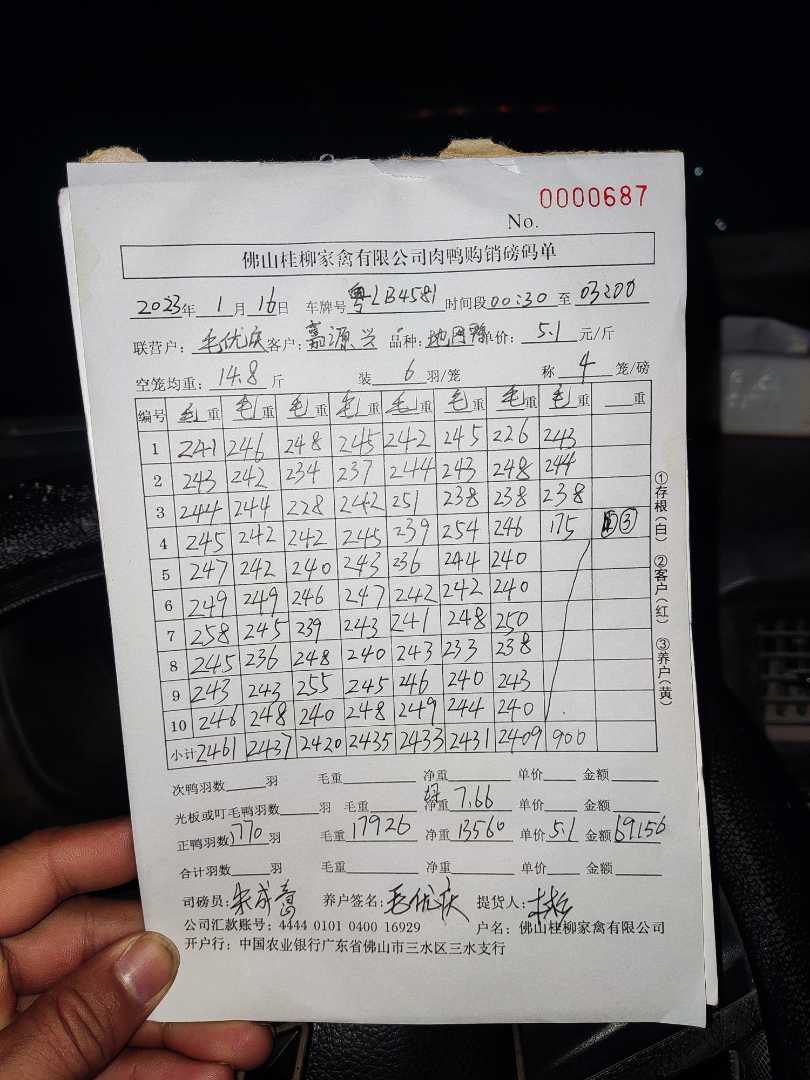 0000687
No.
佛山桂柳家禽有限公司肉鸭购销磅码单
2023年 1月16日 车牌号 粤LB4581 时间段 00:30 至 03:00
联营户：毛优庆 客户：嘉源兴 品种： 单价：5.1 元/斤
空笼均重：14.8 斤 装 6 羽/笼 称 4 笼/磅
编号 毛重 毛重 毛重 毛重 毛重 毛重 毛重 毛重 重
1 241 246 248 245 242 245 226 243
2 243 242 234 237 244 243 248 244
3 244 244 228 242 251 238 238 238
4 245 242 242 245 239 254 246 175 ③
5 247 242 240 243 236 244 240
6 249 249 246 247 242 242 240
7 258 245 239 243 241 248 250
8 245 236 248 240 243 233 238
9 243 243 255 245 246 240 243
10 246 248 240 248 249 244 240
小计 2461 2437 2420 2435 2433 2431 2409 900
①存根(白) ②客户(红) ③养户(黄)
次鸭羽数 羽 毛重 净重 单价 金额
光板或叮毛鸭羽数 羽 毛重 净重 7.66 单价 金额
正鸭羽数 1770 羽 毛重 17926 净重 13560 单价 5.1 金额 69156
合计羽数 羽 毛重 净重 单价 金额
司磅员： 养户签名：毛优庆 提货人：
公司汇款账号：4444 0101 0400 16929 户名：佛山桂柳家禽有限公司
开户行：中国农业银行广东省佛山市三水区三水支行